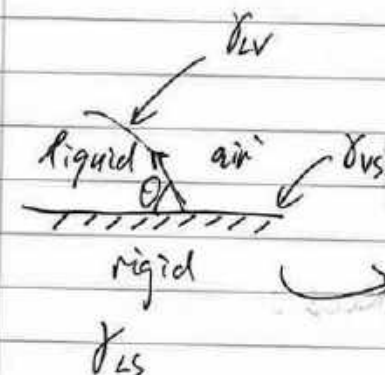 γLV
liquid air γVS
θ
rigid
γLS